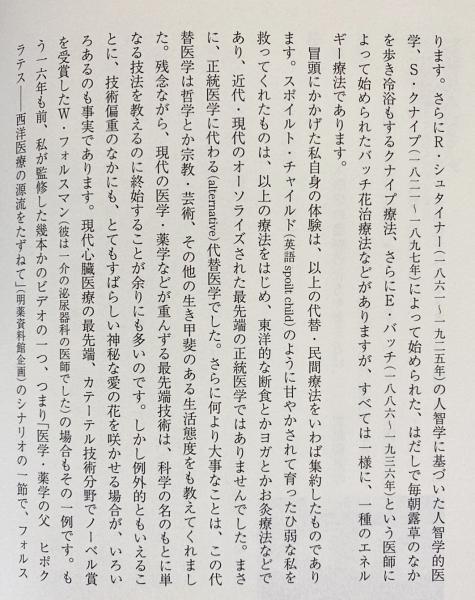 ります。さらにR・シュタイナー(一八六一〜一九二五年)の人智学に基づいた人智学的医
学、S・クナイプ(一八二一〜一八九七年)によって始められた、はだしで毎朝露草のなか
を歩き冷浴もするクナイプ療法、さらにE・バッチ(一八八六〜一九三六年)という医師に
よって始められたバッチ花治療法などがありますが、すべては一様に、一種のエネル
ギー療法であります。
冒頭にかかげた私自身の体験は、以上の代替・民間療法をいわば集約したものであり
ます。スポイルト・チャイルド(英語 spoilt child)のように甘やかされて育ったひ弱な私を
救ってくれたものは、以上の療法をはじめ、東洋的な断食とかヨガとかお灸療法などで
あり、近代・現代のオーソライズされた最先端の正統医学ではありませんでした。まさ
に、正統医学に代わる(alternative)代替医学でした。さらに何より大事なことは、この代
替医学は哲学とか宗教・芸術、その他の生き甲斐のある生活態度をも教えてくれまし
た。残念ながら、現代の医学・薬学などが重んずる最先端技術は、科学の名のもとに単
なる技法を教えるのに終始することが余りにも多いのです。しかし例外的ともいえるこ
とに、技術偏重のなかにも、とてもすばらしい神秘な愛の花を咲かせる場合が、いろい
ろあるのも事実であります。現代心臓医療の最先端、カテーテル技術分野でノーベル賞
を受賞したW・フォルスマン(彼は一介の泌尿器科の医師でした)の場合もその一例です。も
う一六年も前、私が監修した幾本かのビデオの一つ、つまり「医学・薬学の父 ヒポク
ラテス――西洋医療の源流をたずねて」(明薬資料館企画)のシナリオの一節で、フォルス